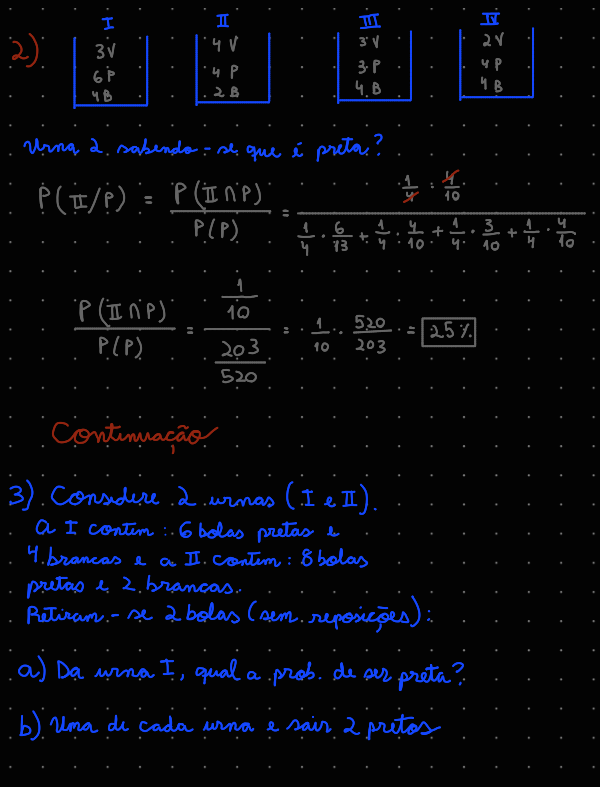 I II III IV
2)
3V 4V 3V 2V
6P 4P 3P 4P
4B 2B 4B 4B
Urna 2 sabendo-se que é preta?
P(II/P) = P(II∩P) / P(P) = (1/4 · 4/10) / (1/4 · 6/13 + 1/4 · 4/10 + 1/4 · 3/10 + 1/4 · 4/10)
P(II∩P) / P(P) = (1/10) / (203/520) = 1/10 · 520/203 = 25%
Continuação
3) Considere 2 urnas (I e II).
a I contem: 6 bolas pretas e
4 brancas e a II contem: 8 bolas
pretas e 2 brancas.
Retiram-se 2 bolas (sem reposições):
a) Da urna I, qual a prob. de ser preta?
b) Uma de cada urna e sair 2 pretas